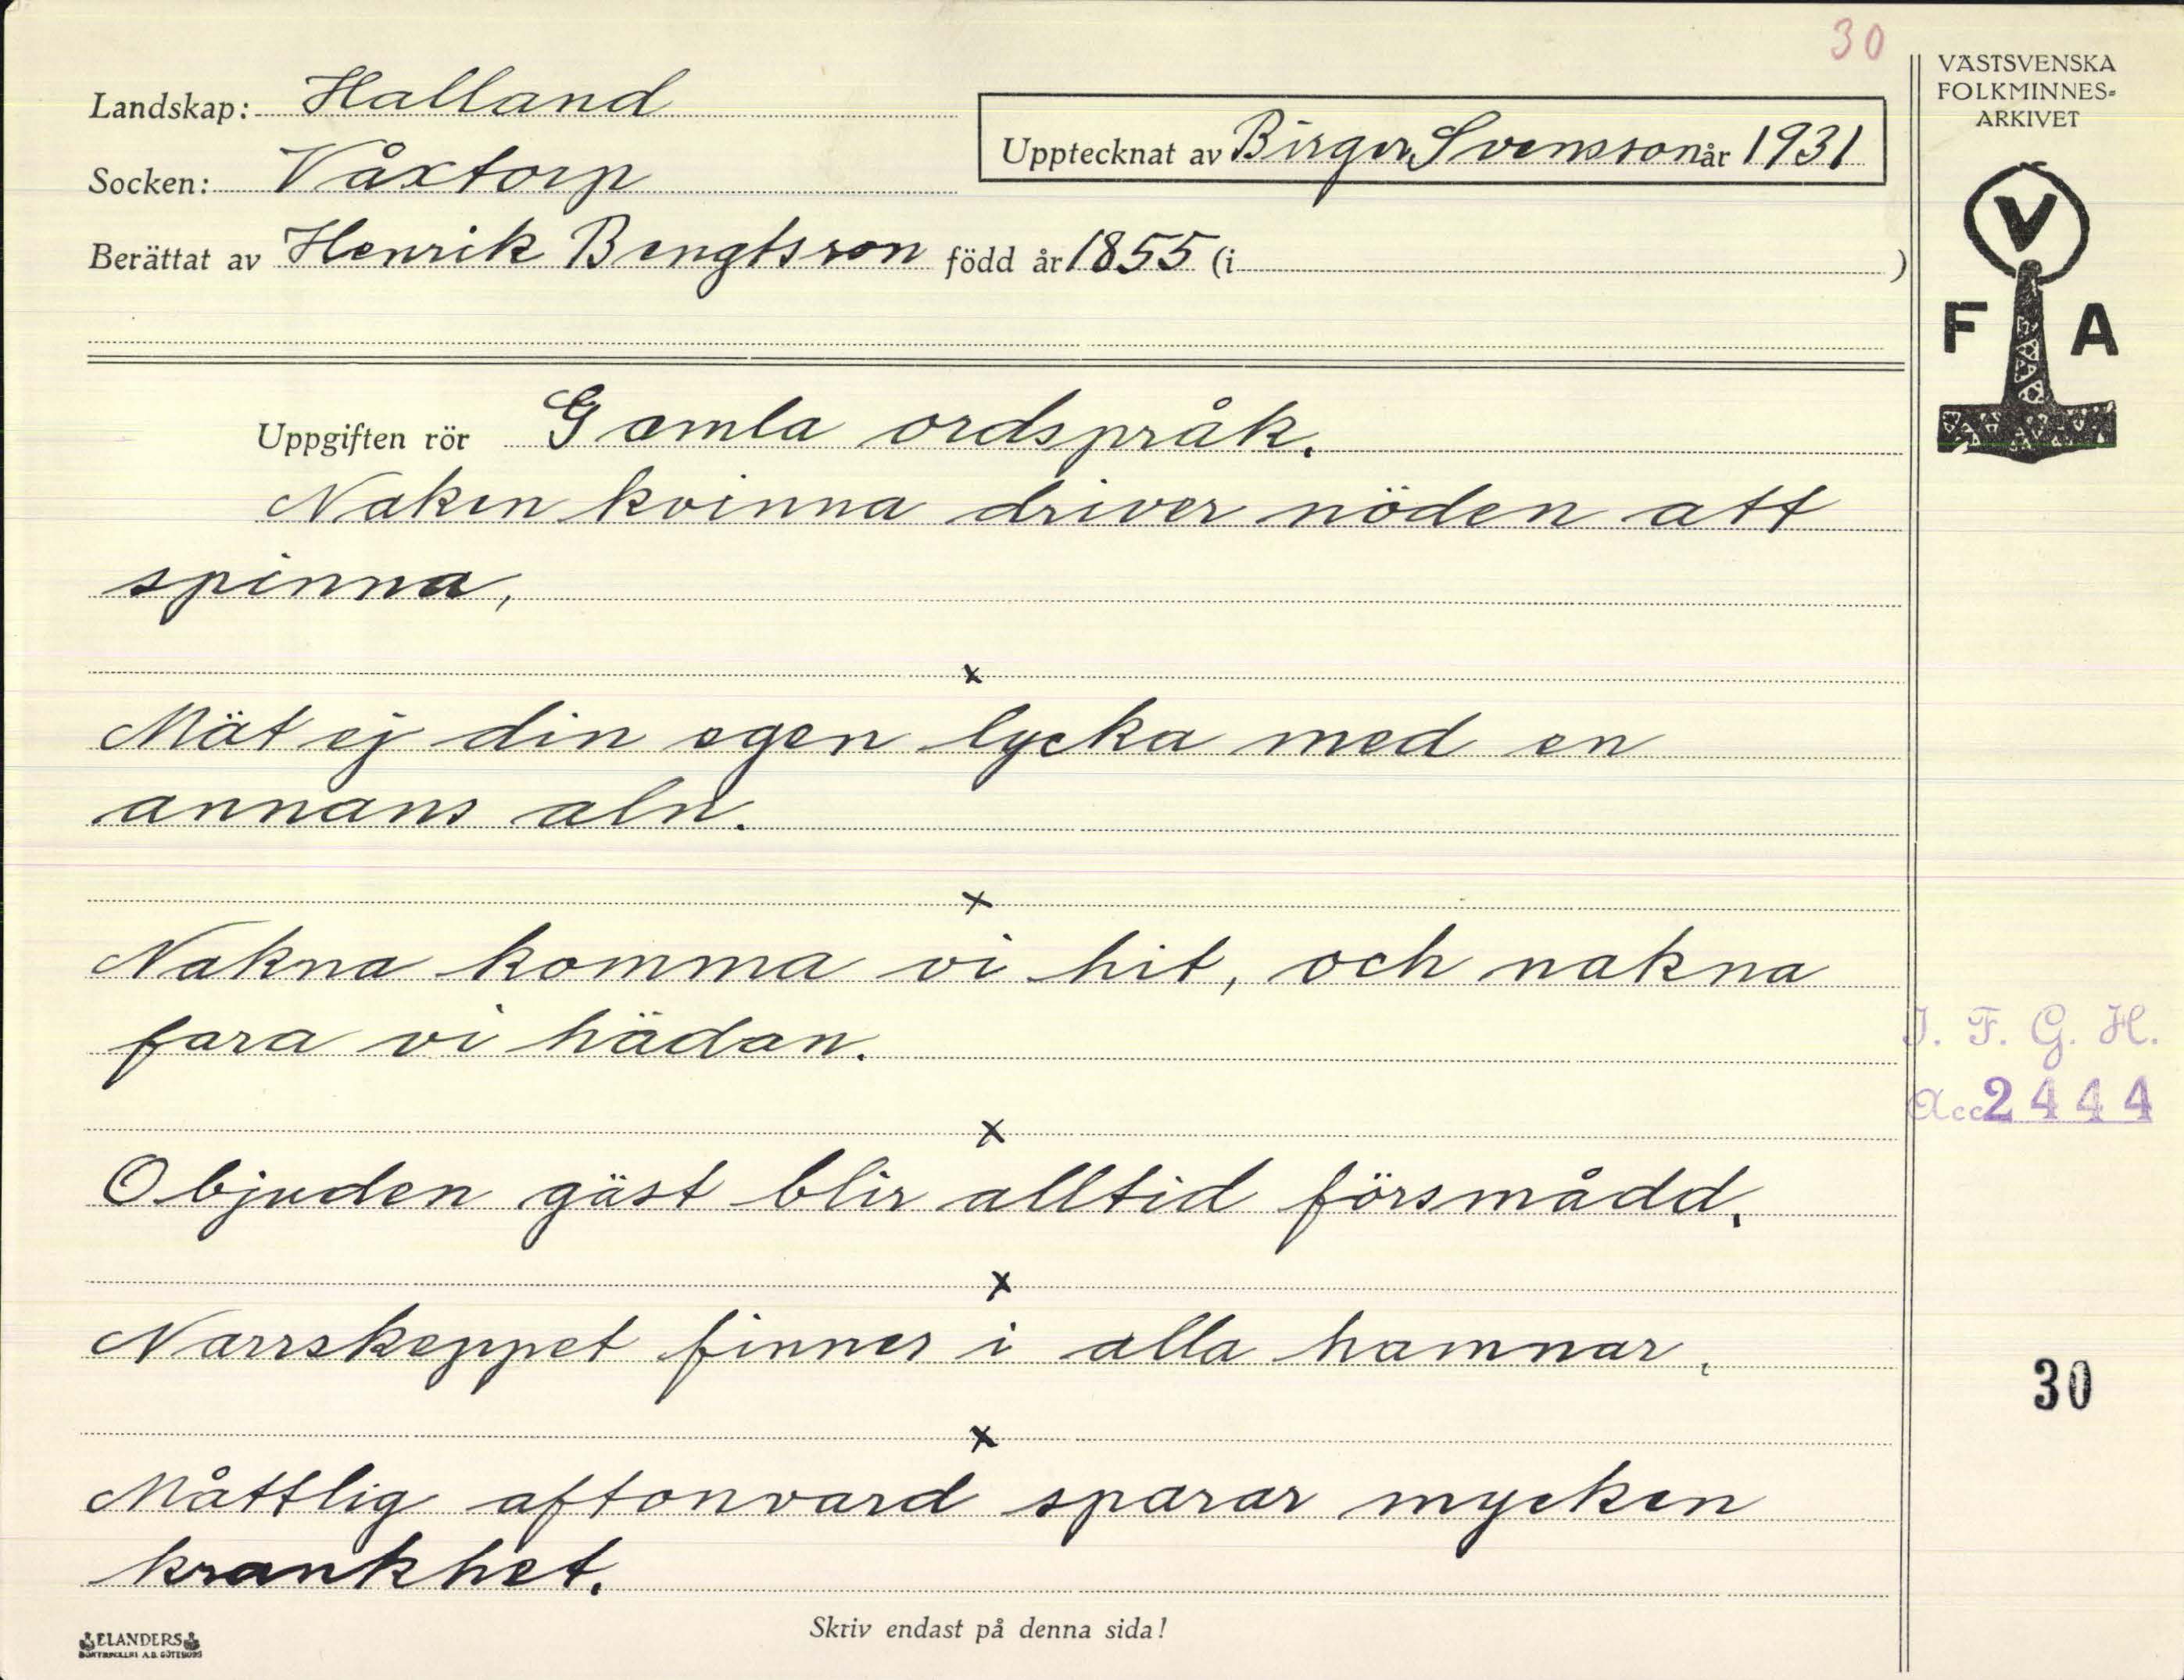 30
VÄSTSVENSKA
FOLKMINNES=
ARKIVET
Landskap: Halland
Upptecknat av Birger Svensson år 1931
Socken: Våxtorp
Berättat av Henrik Bengtsson född år 1855 (i )
V
F A
Uppgiften rör Gamla ordspråk.
Naken kvinna driver nöden att
spinna,
x
Mät ej din egen lycka med en
annans aln.
x
Nakna komma vi hit, och nakna
fara vi hädan.
I. F. G. H.
Acc 2444
x
Objuden gäst blir alltid försmådd.
x
Narrskeppet finnes i alla hamnar.
30
x
Måttlig aftonvard sparar mycken
krankhet.
Skriv endast på denna sida!
ELANDERS
A.B. GÖTEBORG